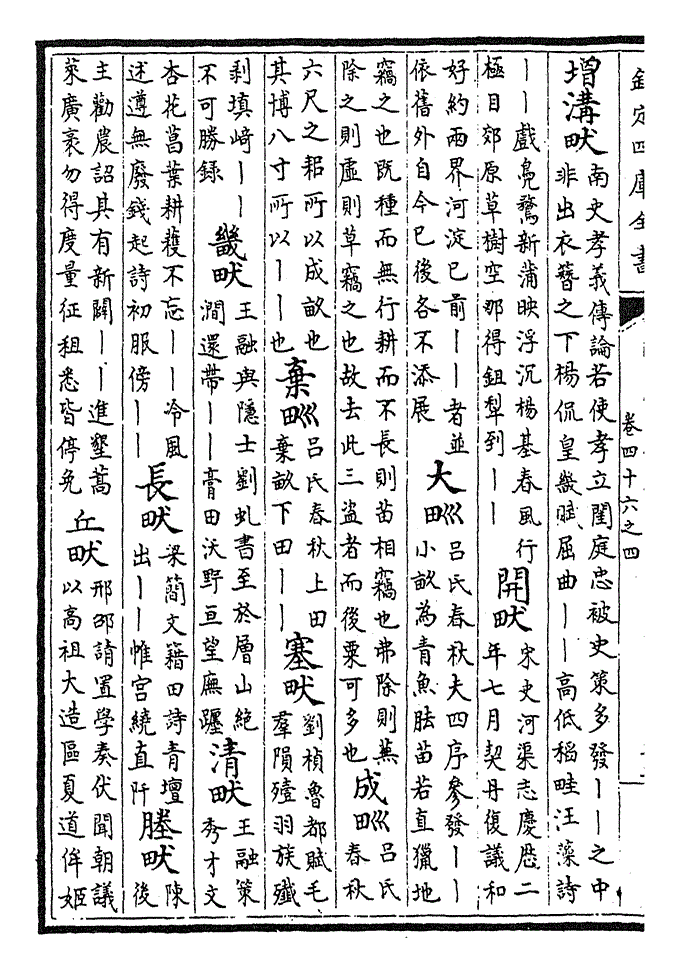 欽定四庫全書
卷四十六之四
增溝畎
南史孝義傳論若使孝立閨庭忠被史策多發丨丨之中
非出衣簪之下楊侃皇畿賦屈曲丨丨高低稻畦汪藻詩
丨丨戲鳧鶩新蒲映浮沉楊基春風行
極目郊原草樹空那得鉏犁到丨丨
開畎
宋史河渠志慶厯二
年七月契丹復議和
好約兩界河淀已前丨丨者並
依舊外自今已後各不添展
大甽
呂氏春秋夫四序參發丨丨
小畝為青魚胠苗若直獵地
竊之也既種而無行耕而不長則苗相竊也弗除則蕪
除之則虛則草竊之也故去此三盜者而後粟可多也
成甽
呂氏
春秋
六尺之耜所以成畝也
其博八寸所以丨丨也
棄甽
呂氏春秋上田
棄畝下田丨丨
塞畎
劉楨魯都賦毛
羣隕殪羽族殲
剥填﨑丨丨
不可勝録
畿畎
王融與隱士劉虬書至於層山絶
澗還帶丨丨膏田沃野亘望廡躔
清畎
王融策
秀才文
杏花菖葉耕穫不忘丨丨冷風
述遵無廢錢起詩初服傍丨丨
長畎
梁簡文籍田詩青壇
出丨丨帷宮繞直阡
塍畎
陳
後
主勸農詔其有新闢丨丨進墾蒿
萊廣袤勿得度量征租悉皆停免
丘畎
邢邵請置學奏伏聞朝議
以高祖大造區夏道侔姬